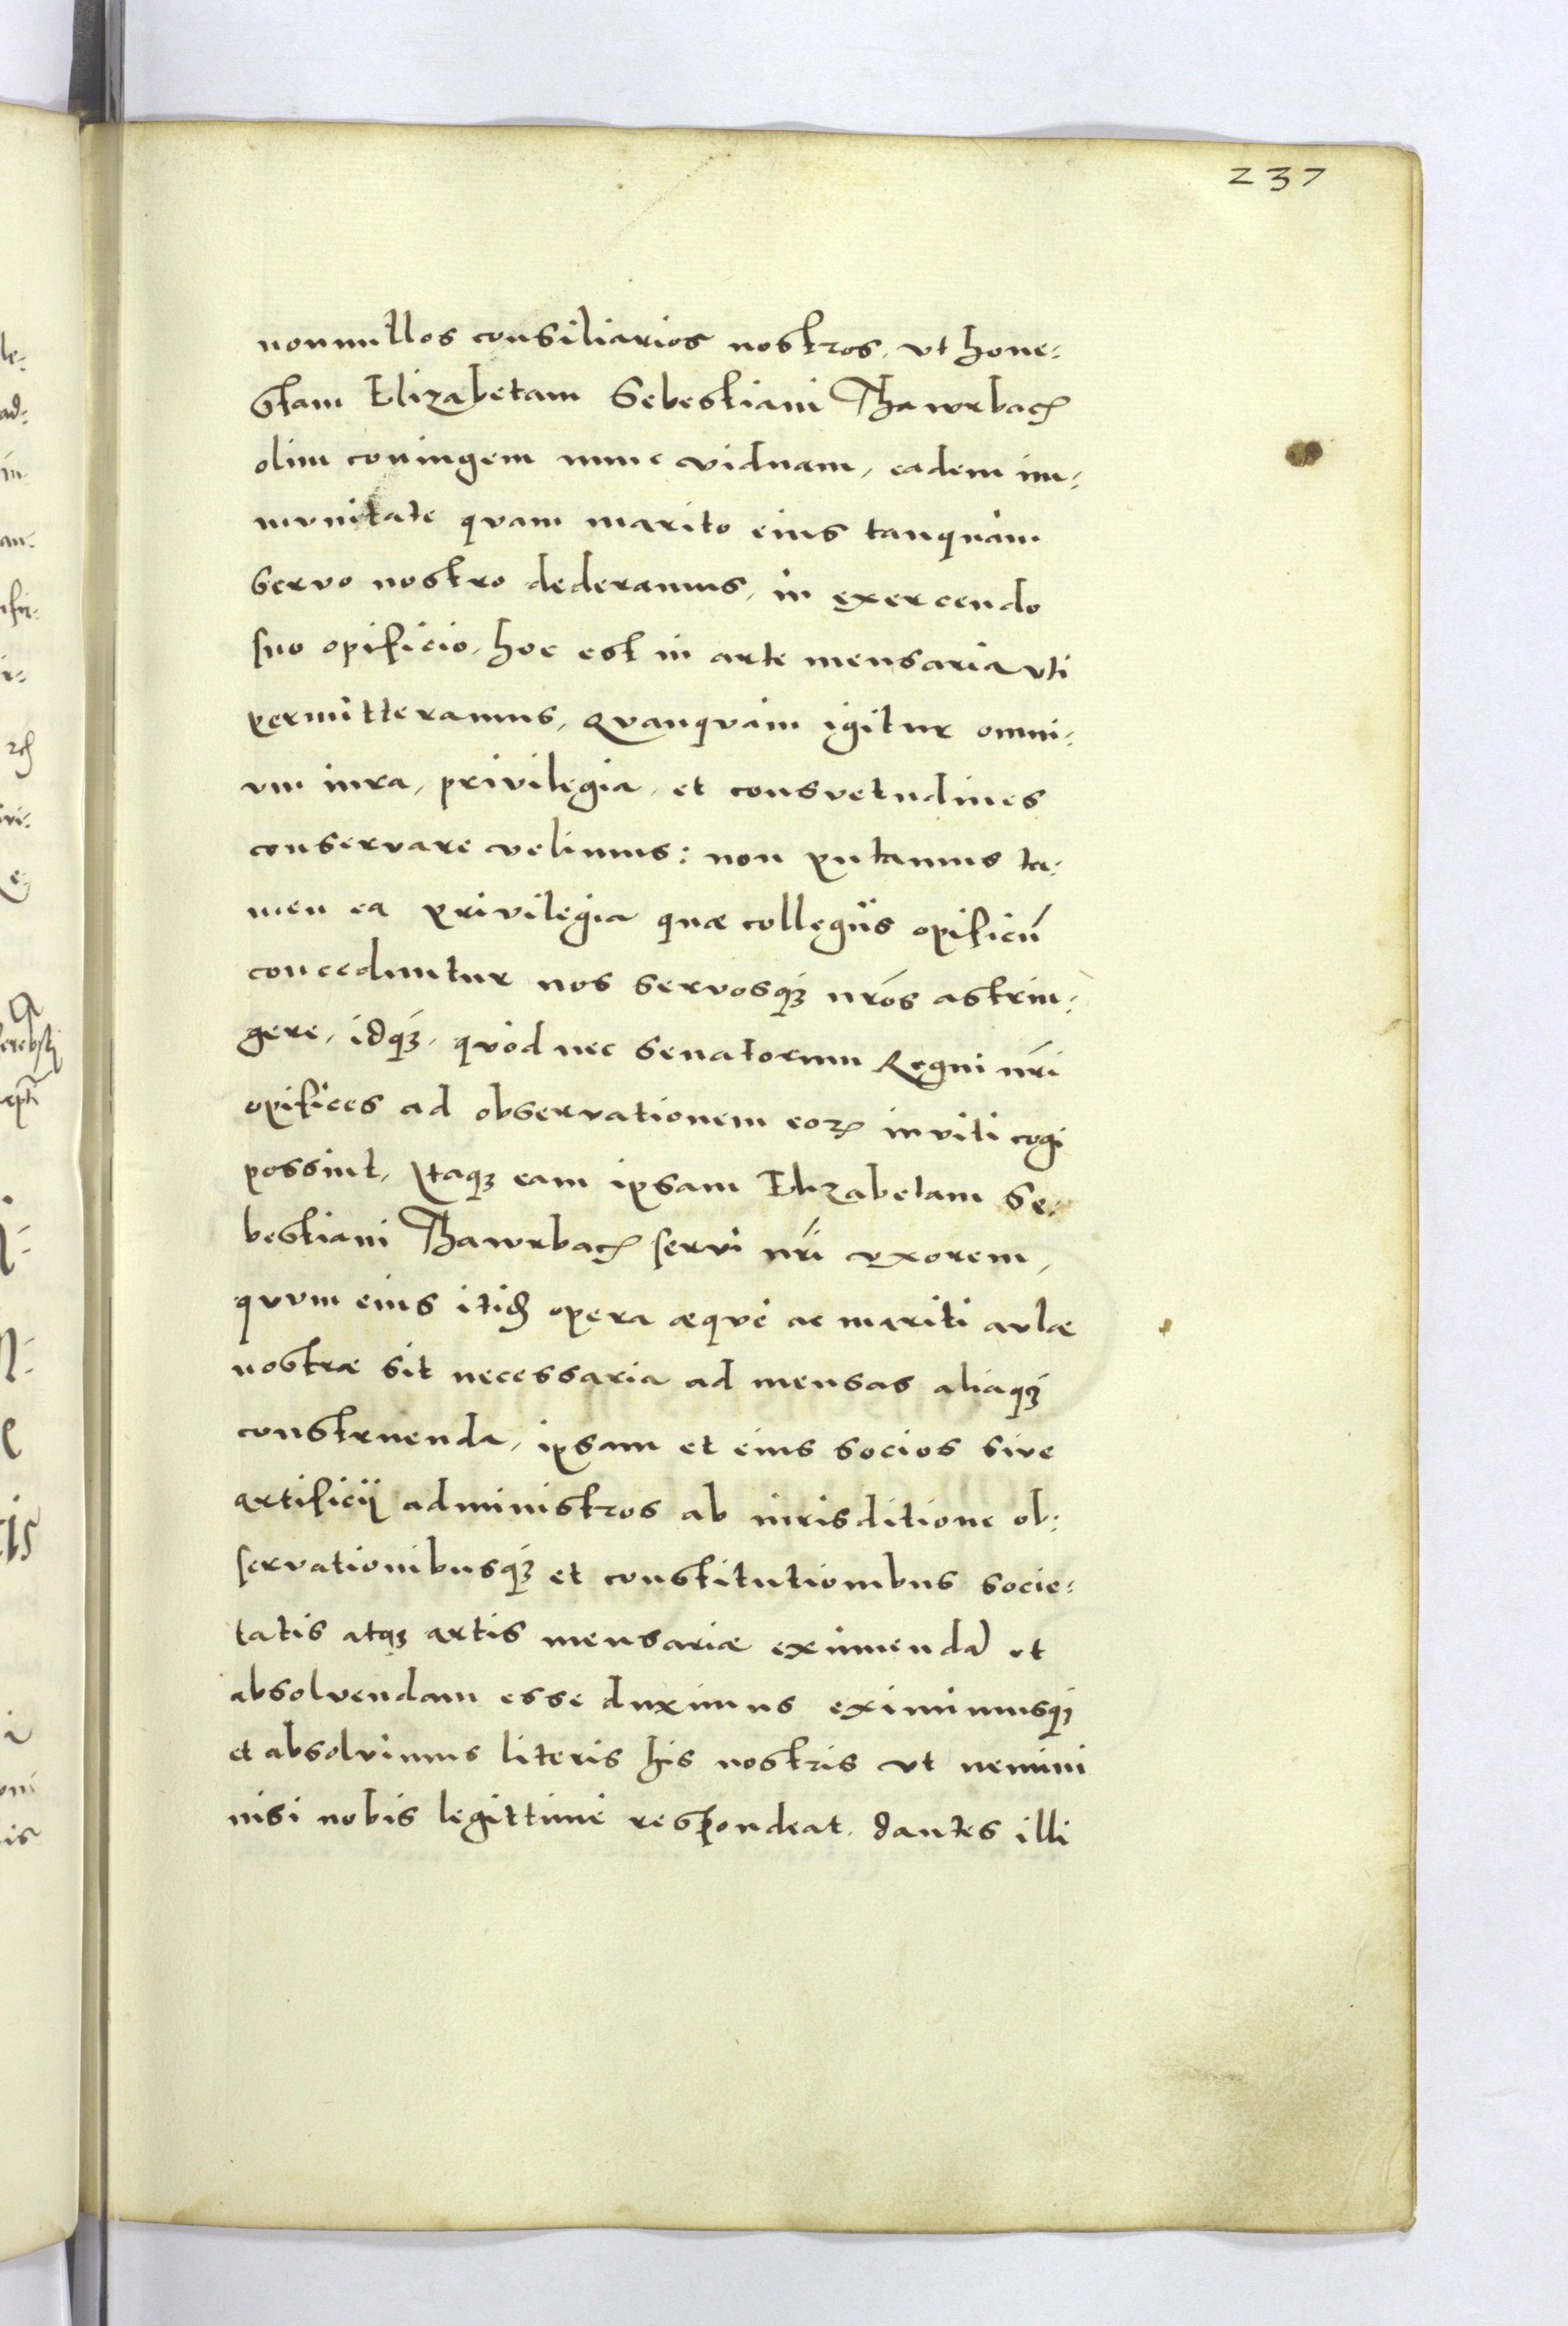 237
nonnullos consiliarios nostros, vt hone:
stam Elizabetam Sebestiani Thawrbach
olim coniugem nunc viduam, eadem im:
mvnitate qvam marito eius tanquàm
servo nostro dederamus, in exercendo
suo opificio, hoc est in arte mensaria vti
permitteramus, Qvanqvàm igitur omni:
vm iura, privilegia, et consvetudines
conservare velimus: non putamus ta:
men ea privilegia quæ collegiis opificū
conceduntur nos servosq́ꝫ nŕos astrin:
gere, idq́ꝫ, qvòd nec senatorum Regni nŕi
opifices ad observationem eoꝝ inviti cogi
possint, Itaqꝫ eam ipsam Elizabetam Se:
bestiani Thawrbach servi nŕi vxorem,
qvvm eius itidē opera æqvè ac mariti avlæ
nostræ sit necessaria ad mensas aliaq́ꝫ
construenda, ipsam et eius socios sive
artificij administros ab iurisditione ob:
servationibusq́ꝫ et constitutionibus socie:
tatis atqꝫ artis mensariæ eximendā et
absolvendam esse duximus eximimusq́ꝫ
et absolvimus literis his nostris vt nemini
nisi nobis legittimè respondeat, dantes illi